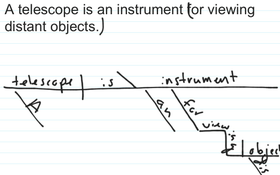 A telescope is an instrument (for viewing
distant objects.)
telescope is instrument
A an for
view
object